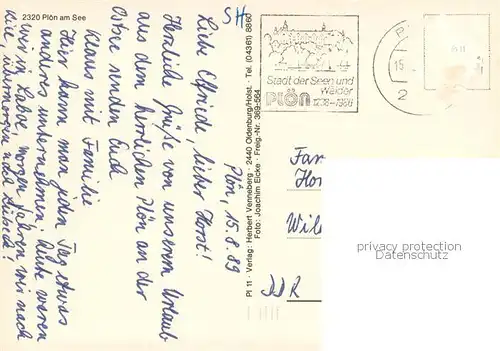 2320 Plön am See
Plön, 15.8.89
Liebe Elfriede, lieber Horst!
Herzliche Grüße von unserem Urlaub
aus dem herrlichen Plön an der
Ostsee senden Euch
Klaus mit Familie
Hier kann man jeden Tag etwas
anderes unternehmen. Heute waren
wir in Laboe, morgen fahren wir nach
Kiel, übermorgen nach Lübeck!
Pl 11 · Verlag: Herbert Venneberg · 2440 Oldenburg/Holst. · Tel. (04361) 8860
Foto: Joachim Eicke · Freig.-Nr. 369-564
SH
Stadt der Seen und
Wälder
PLÖN 1236-1986
P
15
2
Fam
Hor
Wil
DDR
privacy protection
www.oldthing.de